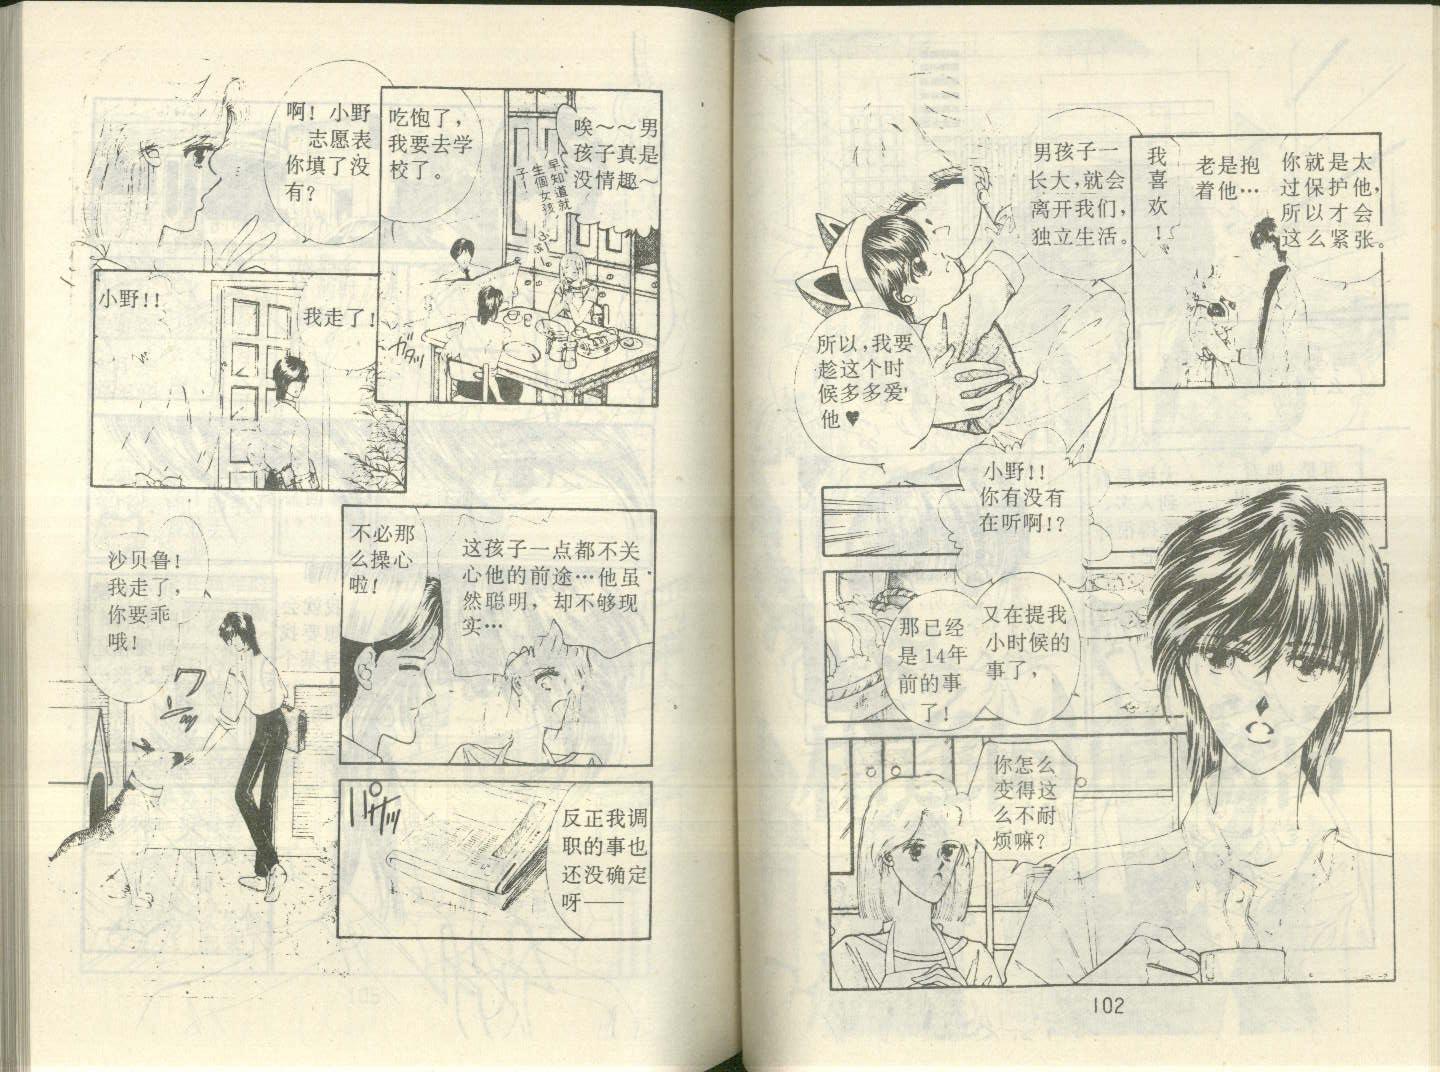 你就是太
过保护他，
所以才会
这么紧张。
老是抱
着他…
我
喜
欢
！
男孩子一
长大，就会
离开我们，
独立生活。
所以，我要
趁这个时
候多多爱
他♥
小野！！
你有没有
在听啊！？
又在提我
小时候的
事了，
那已经
是14年
前的事
了！
你怎么
变得这
么不耐
烦嘛？
102
唉～～男
孩子真是
没情趣～
早知道就
生個女孩
子！
吃饱了，
我要去学
校了。
啊！小野
志愿表
你填了没
有？
ガタッ
小野！！
我走了！
这孩子一点都不关
心他的前途…他虽
然聪明，却不够现
实…
不必那
么操心
啦！
沙贝鲁！
我走了，
你要乖
哦！
ワン
バサッ
反正我调
职的事也
还没确定
呀——